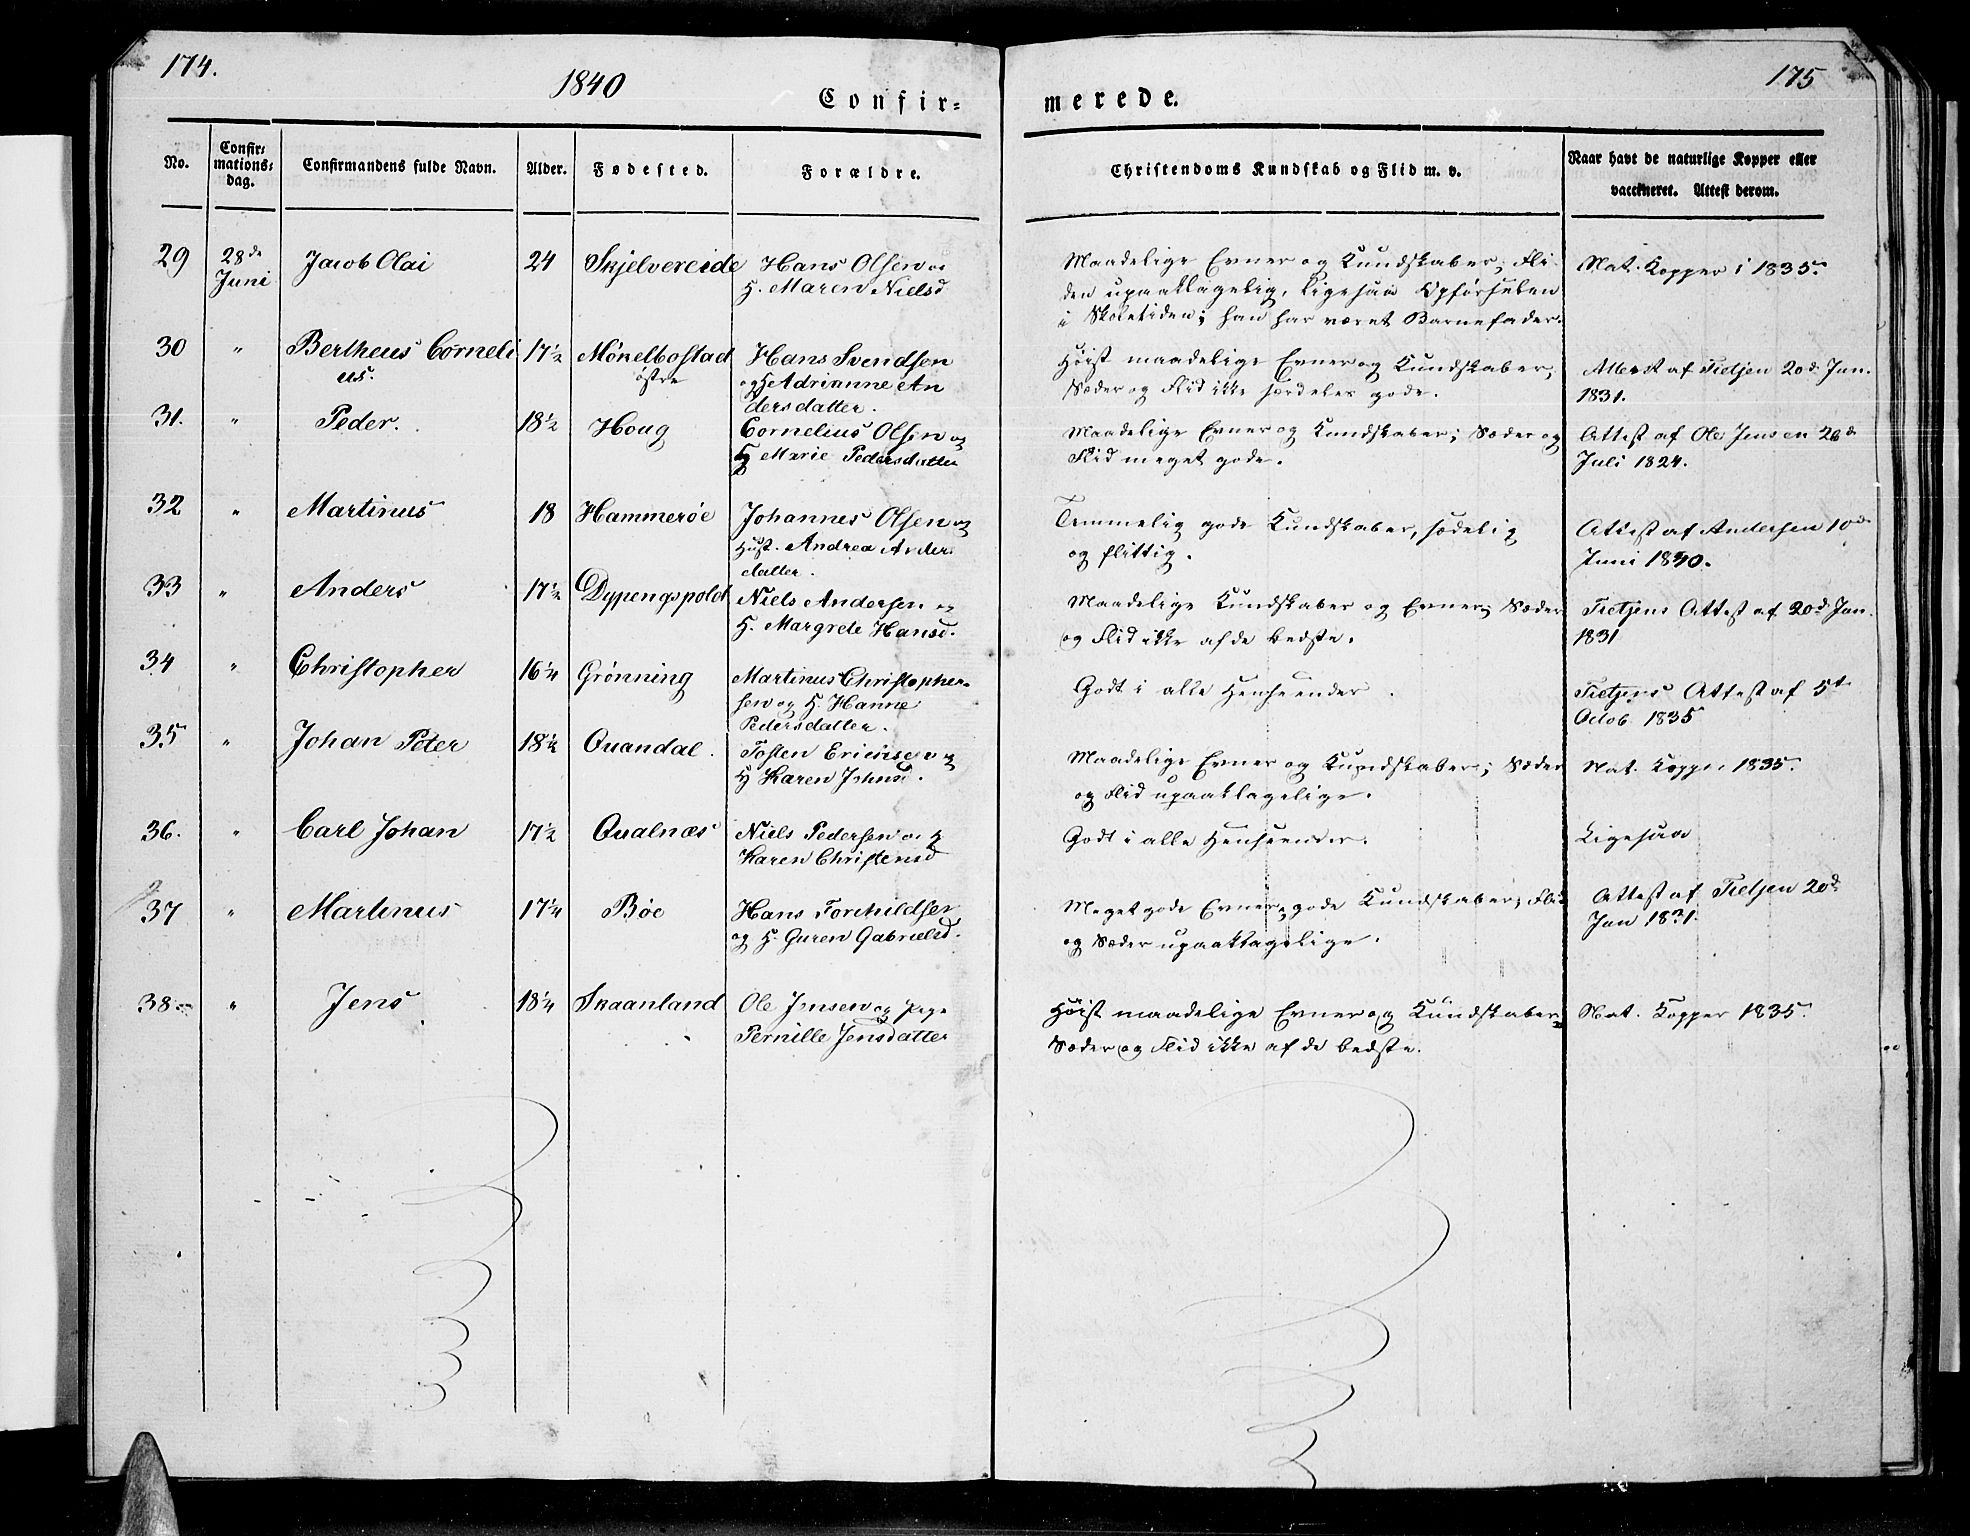 174.
1840
Confir-
No.
Confir-
mations-
dag.
Confirmandens fulde Navn.
Alder.
Fødested.
Forældre.
29
28de
Juni
Jacob Olai
24
Skjelvereide
Hans Olsen og
H. Maren Nielsd
30
"
Bertheus Corneli
us.
17½
Mökelbostad
østre
Hans Svendsen
og H Adrianne An
dersdatter.
31.
"
Peder.
18½
Houg
Cornelius Olsen og
H Marie Pedersdatter
32
"
Martinus
18
Hammeröe
Johannes Olsen og
Hust. Andrea Anders
datter.
33
"
Anders
17½
Dypengspoldt
Niels Andersen og
H. Margrete Hansd.
34
"
Christopher
16¼
Grönning
Martinus Christopher-
sen og H. Hanne
Pedersdatter.
35
"
Johan Peter
18¼
Quandal.
Tosten Ericksen og
H Karen Johnsd.
36.
"
Carl Johan
17½
Qualnæs
Niels Pedersen og H
Karen Christensd
37
"
Martinus
17¼
Böe
Hans Torchildsen
og H. Guren Gabrielsd.
38
"
Jens
18¼
Skaanland
Ole Jensen og Pige
Pernille Jensdatter
175
merede.
Christendoms Kundskab og Flid m. v.
Naar havt de naturlige Kopper eller
vaccineret. Attest derom.
Maadelige Evner og Kundskaber; Fli-
den upaaklagelig, ligesaa Opförselen
i Skoletiden; han har været Barnefader.
Nat. Kopper i 1835.
Höist maadelige Evner og Kundskaber;
Sæder og Flid ikke særdeles gode.
Attest af Tietjen 20d. Jan.
1831.
Maadelige Evner og Kundskaber; Sæder og
Flid meget gode.
Attest af Ole Jensen 28de
Juli 1824.
Temmelig gode Kundskaber, sædelig
og flittig.
Attest af Andersen 10de
Juni 1840.
Maadelige Kundskaber og Evner; Sæder
og Flid ikke af de bedste.
Tietjens Attest af 20d. Jan.
1831
Godt i alle Henseender.
Tietjens Attest af 5te
Octob 1835
Maadelige Evner og Kundskaber; Sæder
og Flid upaaklagelige.
Nat. Kopper 1835.
Godt i alle Henseender.
Ligesaa
Meget gode Evner, gode Kundskaber; Flid
og Sæder upaaklagelige.
Attest af Tietjen 20de
Jan 1831.
Höist maadelige Evner og Kundskaber
Sæder og Flid ikke af de bedste.
Nat. Kopper 1835.